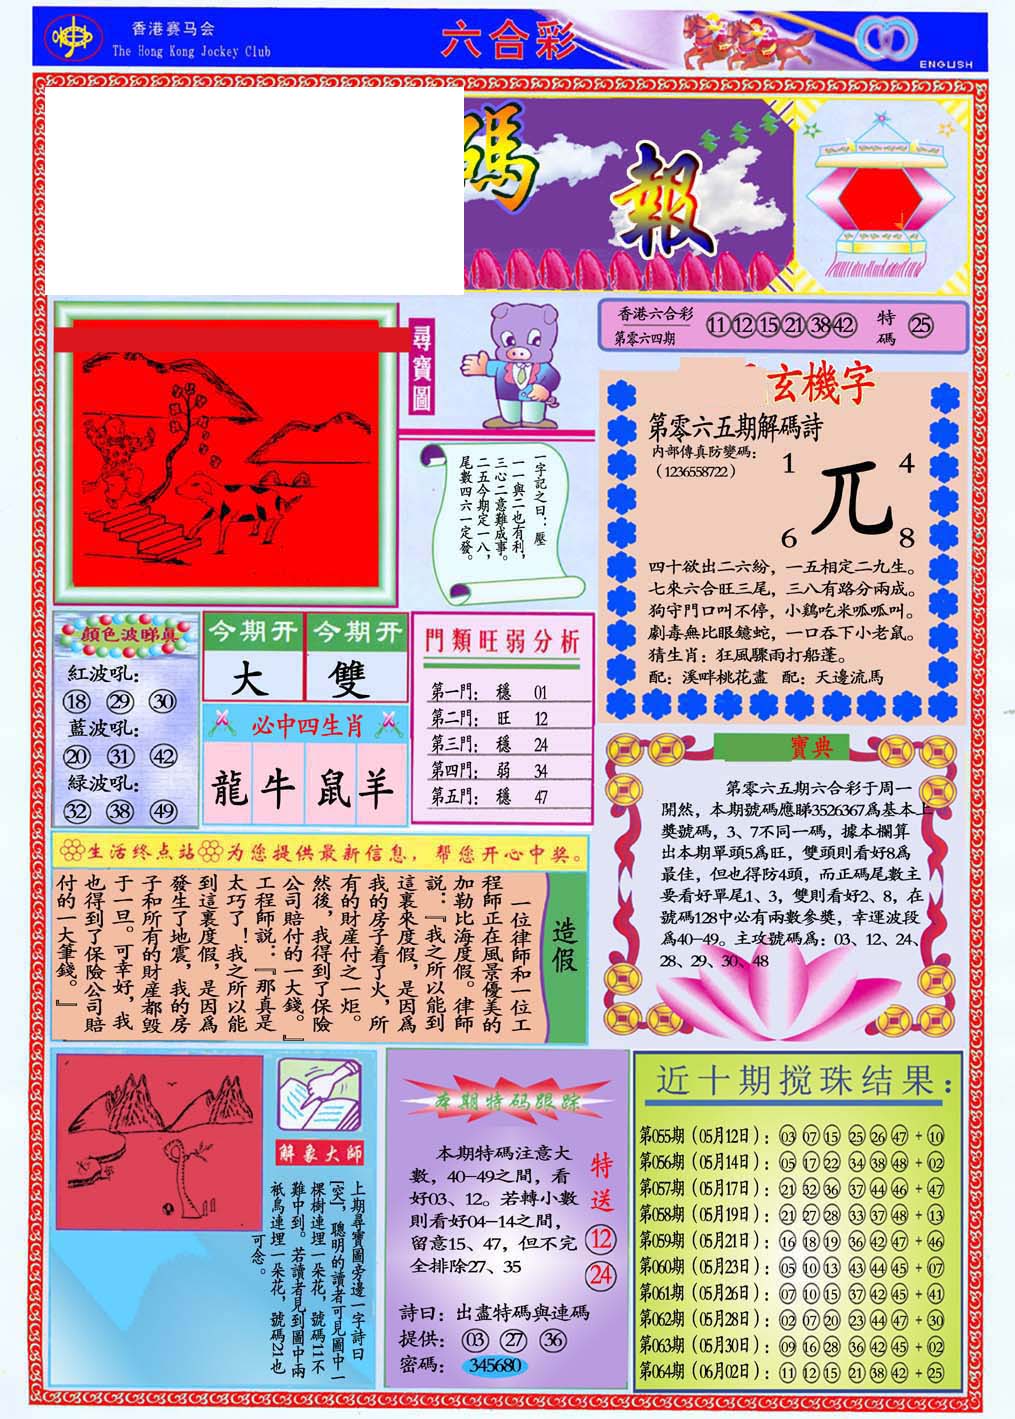 香港赛马会
The Hong Kong Jockey Club
六合彩
ENGLISH
碼報
尋寶圖
香港六合彩
第零六四期
11 12 15 21 38 42
特碼
25
玄機字
第零六五期解碼詩
内部傳真防變碼：
（1236558722）
1 4
兀
6 8
四十欲出二六紛，一五相定二九生。
七來六合旺三尾，三八有路分兩成。
狗守門口叫不停，小鷄吃米呱呱叫。
劇毒無比眼鏡蛇，一口吞下小老鼠。
猜生肖：狂風驟雨打船蓬。
配：溪畔桃花盡 配：天邊流馬
一字記之曰：壓
一一與二也有利，
三心二意難成事。
二五今期定一八，
尾數四六一定發。
顏色波睇真
紅波吼：
18 29 30
藍波吼：
20 31 42
緑波吼：
32 38 49
今期开 今期开
大 雙
必中四生肖
龍 牛 鼠 羊
門類旺弱分析
第一門： 穩 01
第二門： 旺 12
第三門： 穩 24
第四門： 弱 34
第五門： 穩 47
寶典
第零六五期六合彩于周一
開然，本期號碼應睇3526367爲基本上
獎號碼，3、7不同一碼，據本欄算
出本期單頭5爲旺，雙頭則看好8爲
最佳，但也得防4頭，而正碼尾數主
要看好單尾1、3，雙則看好2、8，在
號碼128中必有兩數參獎，幸運波段
爲40-49。主攻號碼爲：03、12、24、
28、29、30、48
生活终点站 为您提供最新信息，帮您开心中奖。
造假
一位律師和一位工
程師正在風景優美的
加勒比海度假。律師
説：『我之所以能到
這裏來度假，是因爲
我的房子着了火，所
有的財産付之一炬。
然後，我得到了保險
公司賠付的一大錢。』
工程師説：『那真是
太巧了！我之所以能
到這裏度假，是因爲
發生了地震，我的房
子和所有的財産都毁
于一旦。可幸好，我
也得到了保險公司賠
付的一大筆錢。』
解象大師
上期尋寶圖旁邊一字詩曰
[突]，聰明的讀者可見圖中一
棵樹連埋一朵花，號碼11不
難中到。若讀者見到圖中兩
衹鳥連埋一朵花，號碼21也
可念。
本期特码跟踪
本期特碼注意大
數，40-49之間，看
好03、12。若轉小數
則看好04-14之間，
留意15、47，但不完
全排除27、35
特送
12
24
詩曰：出盡特碼與連碼
提供： 03 27 36
密碼： 345680
近十期搅珠结果：
第055期（05月12日）：03 07 15 25 26 47 + 10
第056期（05月14日）：05 17 22 34 38 48 + 02
第057期（05月17日）：21 32 36 37 44 46 + 47
第058期（05月19日）：21 27 28 33 37 48 + 13
第059期（05月21日）：16 18 19 36 42 47 + 46
第060期（05月23日）：05 10 13 43 44 45 + 07
第061期（05月26日）：07 10 15 37 42 45 + 41
第062期（05月28日）：02 07 20 23 44 47 + 30
第063期（05月30日）：09 16 28 36 42 45 + 02
第064期（06月02日）：11 12 15 21 38 42 + 25